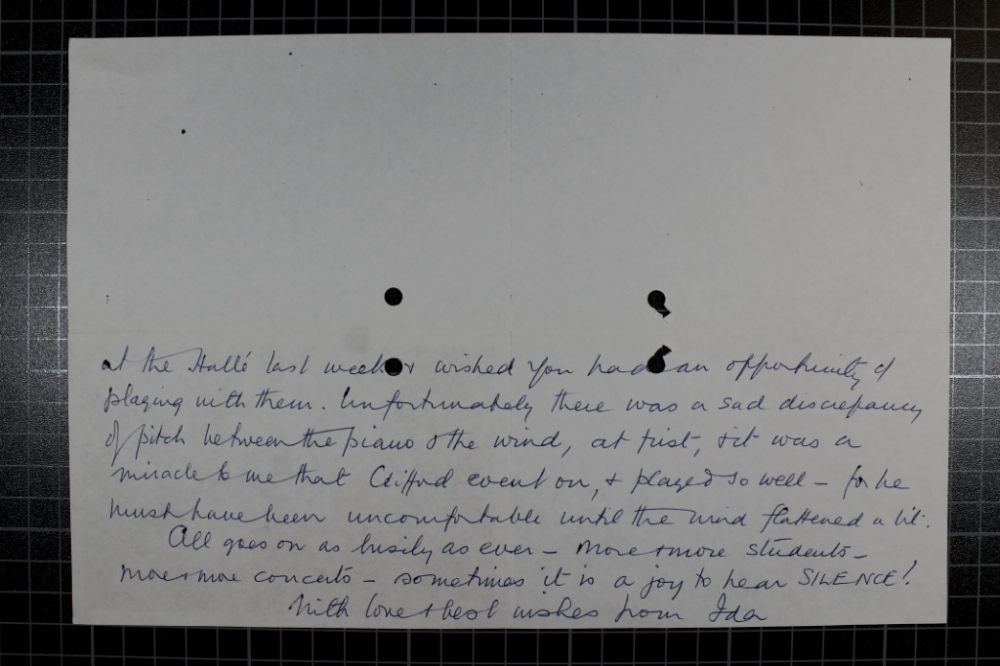 at the Hallé last week & wished you had an opportunity of
playing with them. Unfortunately there was a sad discrepancy
of pitch between the piano & the wind, at first, & it was a
miracle to me that Clifford went on, & played so well – for he
must have been uncomfortable until the wind flattened a bit.
All goes on as busily as ever – more & more students –
more & more concerts – sometimes it is a joy to hear SILENCE!
With love & best wishes from Ida